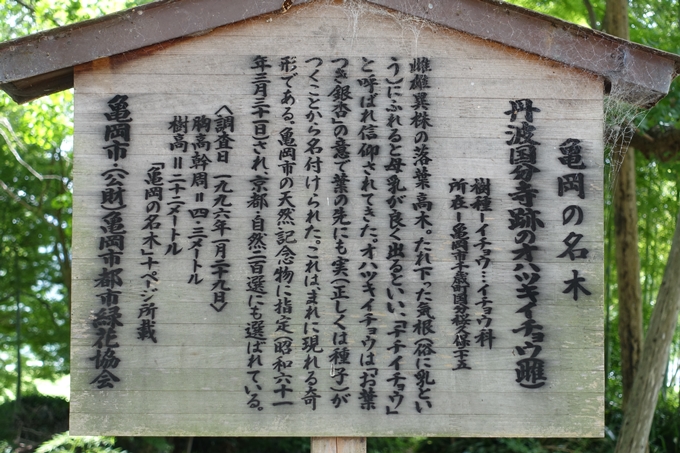 亀岡の名木
丹波国分寺跡のオハツキイチョウ(雌)
樹種ーイチョウ…イチョウ科
所在ー亀岡市千歳町国分
雌雄異株の落葉高木。たれ下った気根(俗に乳とい
う)にふれると母乳が良く出るといい、「チチイチョウ」
と呼ばれ信仰されてきた。オハツキイチョウは「お葉
つき銀杏」の意で葉の先にも実(正しくは種子)が
つくことから名付けられた。これはまれに現れる奇
形である。亀岡市の天然記念物に指定(昭和六十一
年三月三十一日)され、京都・自然二百選にも選ばれている。
〈調査日 一九九六年一月二十九日〉
胸高幹周=四・三メートル
樹高=二十二メートル
「亀岡の名木」十ページ所載
亀岡市・(公財)亀岡市都市緑花協会